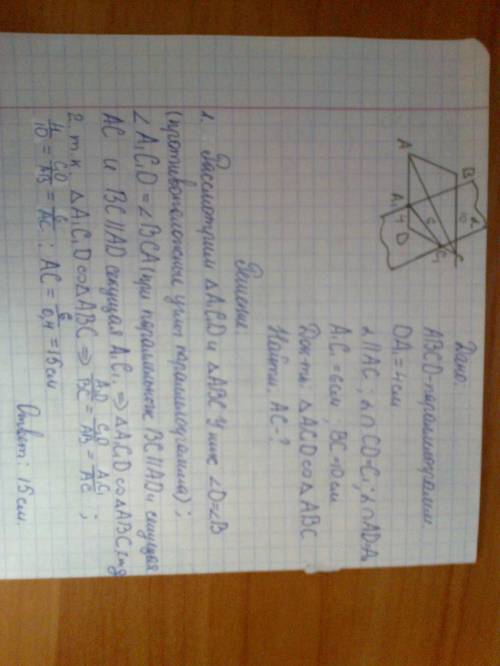 B
C
α
10
6
C₁
A
A₁ 4 D
Дано:
ABCD-параллелограмм.
DA₁=4см
α||AC; α∩CD=C₁; α∩AD=A₁
A₁C₁=6см, BC=10см
Док-ть: △A₁C₁D∾△ABC
Найти: AC-?
Решение:
1. Рассмотрим △A₁C₁D и △ABC У них ∠D=∠B
(противоположные углы параллелограмма);
∠A₁C₁D=∠BCA (при параллельных BC||AD и секущая
AC и BC||AD секущая A₁C₁, ⇒ △A₁C₁D∾△ABC
2. т.к. △A₁C₁D∾△ABC ⇒ A₁D/BC = C₁D/AB = A₁C₁/AC ;
4/10 = C₁D/AB = 6/AC ; AC = 6/0,4 = 15см
Ответ: 15см.